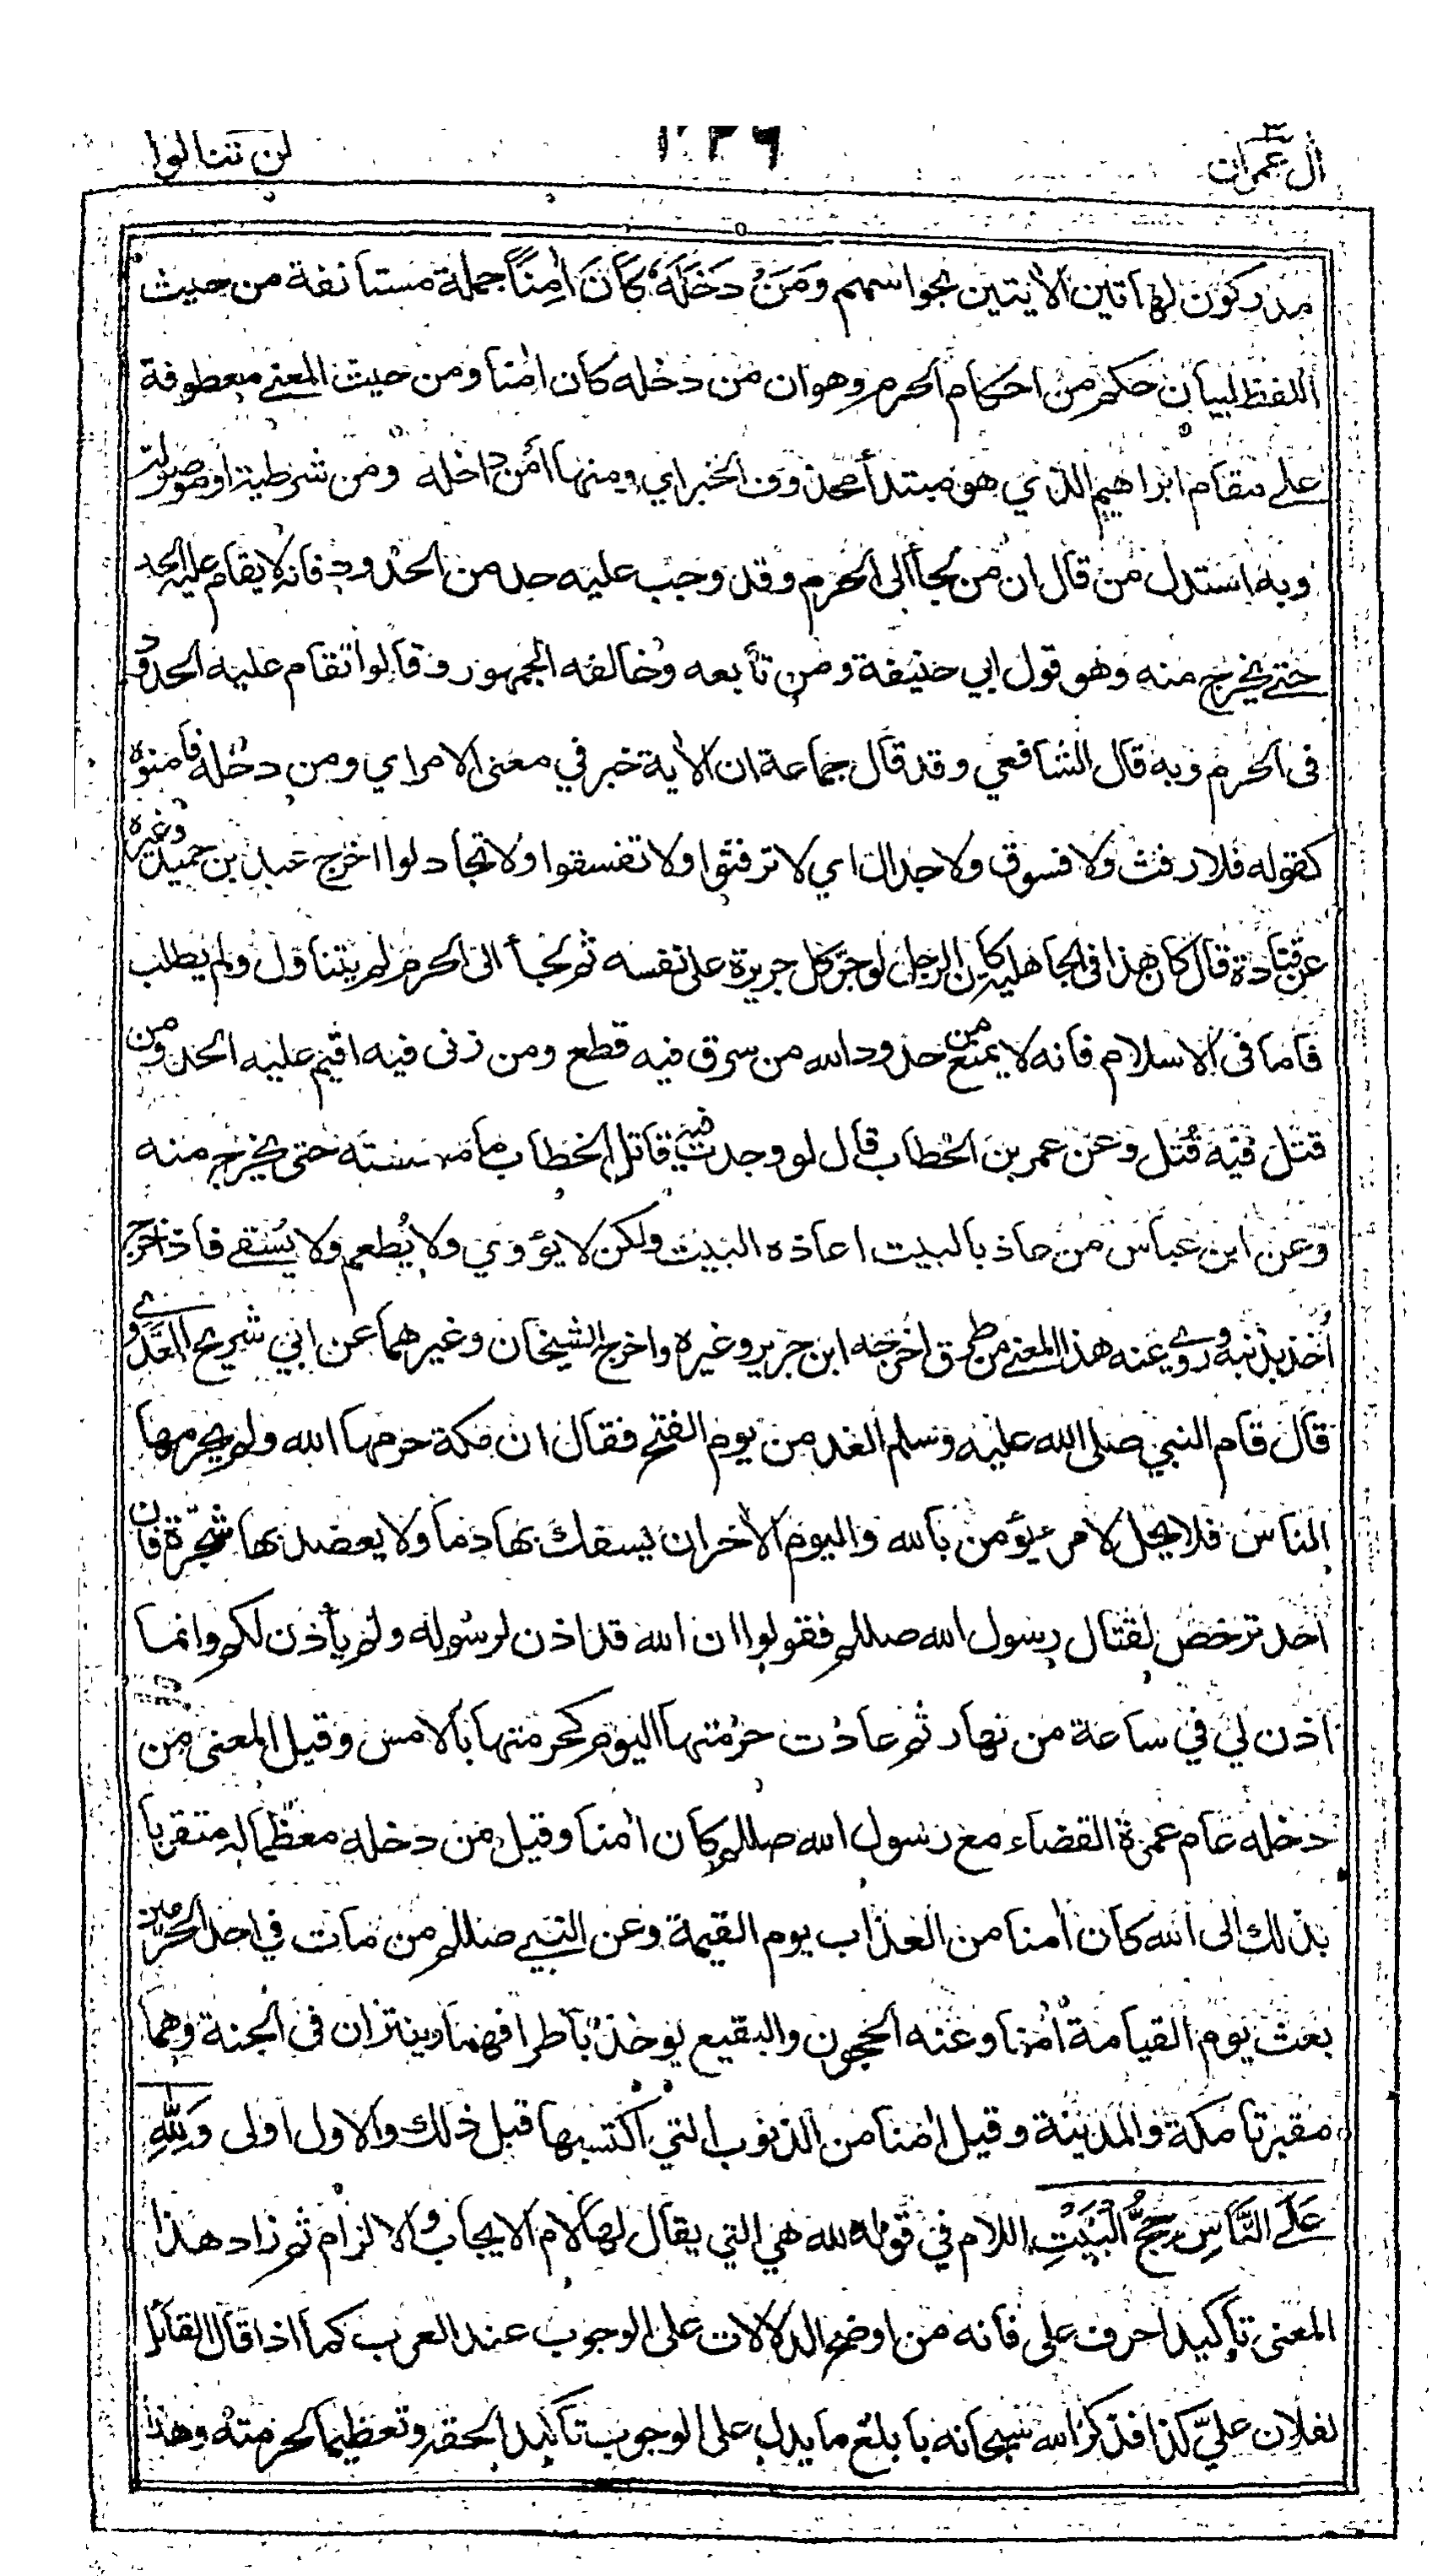 اٰل عمران ٣
لن تنالوا
مدركون لهاتين الاٰيتين بحواسهم وَمَنْ دَخَلَهُ كَانَ اٰمِنًا جملة مستانفة من حيث
اللفظ لبيان حكم من احكام الحرم وهو ان من دخله كان اٰمنا ومن حيث المعنى معطوفة
على مقام ابراهيم الذي هو مبتدأ محذوف الخبر اي ومنها امن داخله ومن شرطية او موصولة
وبه استدل من قال ان من لجأ الى الحرم وقد وجب عليه حد من الحدود فانه لا يقام عليه الحد
حتى يخرج منه وهو قول ابي حنيفة ومن تابعه وخالفه الجمهور وقالوا تقام عليه الحدود
فى الحرم وبه قال الشافعي وقد قال جماعة ان الاٰية خبر في معنى الامر اي ومن دخله فامنوه
كقوله فلا رفث ولا فسوق ولا جدال اي لا ترفثوا ولا تفسقوا ولا تجادلوا اخرج عبد بن حميد وغيره
عن قتادة قال كان هذا فى الجاهلية كان الرجل لو جرّ كل جريرة على نفسه ثم لجأ الى الحرم لم يتناول ولم يطلب
فاما فى الاسلام فانه لا يمنع من حدود الله من سرق فيه قطع ومن زنى فيه اقيم عليه الحد ومن
قتل فيه قُتل وعن عمر بن الخطاب قال لو وجدت فيه قاتل الخطاب ما مسسته حتى يخرج منه
وعن ابن عباس من عاذ بالبيت اعاذه البيت ولكن لا يؤوي ولا يُطعم ولا يُسقى فاذا خرج
اُخذ بذنبه وروي عنه هذا المعنى من طرق اخرجه ابن جرير وغيره واخرج الشيخان وغيرهما عن ابي شريح العَدَوي
قال قام النبي صلى الله عليه وسلم الغد من يوم الفتح فقال ان مكة حرمها الله ولم يحرمها
الناس فلا يحل لامرئ يؤمن بالله واليوم الاٰخر ان يسفك بها دما ولا يعضد بها شجرة فان
احد ترخص لقتال رسول الله صللم فقولوا ان الله قد اذن لرسوله ولم يأذن لكم وانما
اذن لي في ساعة من نهار ثم عادت حرمتها اليوم كحرمتها بالامس وقيل المعنى من
دخله عام عمرة القضاء مع رسول الله صللم كان اٰمنا وقيل من دخله معظّما له متقربا
بذلك الى الله كان اٰمنا من العذاب يوم القيمة وعن النبي صللم من مات في احد الحرمين
بعث يوم القيامة اٰمنا وعنه الحجون والبقيع يوخذ باطرافهما وينثران فى الجنة وهما
مقبرتا مكة والمدينة وقيل اٰمنا من الذنوب التي اكتسبها قبل ذلك والاول اولى وَلِلّٰهِ
عَلَى النَّاسِ حِجُّ الْبَيْتِ اللام في قوله لله هي التي يقال لها لام الايجاب والالزام ثم زاد هذا
المعنى تاكيدا حرف على فانه من اوضح الدلالات على الوجوب عند العرب كما اذا قال القائل
لفلان عليّ كذا فذكر الله سبحانه بابلغ ما يدل على الوجوب تاكيدا لحقه وتعظيما لحرمته وهذا